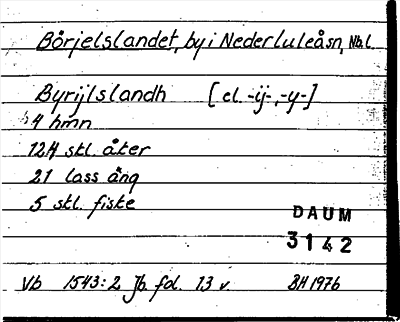 Börjelslandet, by i Nederluleåsn, Nb.l.
Byrijlslandh [el. -ij-, -y-]
4 hmn
124 skl. åker
21 lass äng
5 skl. fiske
DAUM
3142
Vb 1543:2 Jb. fol. 13 v. BH 1976